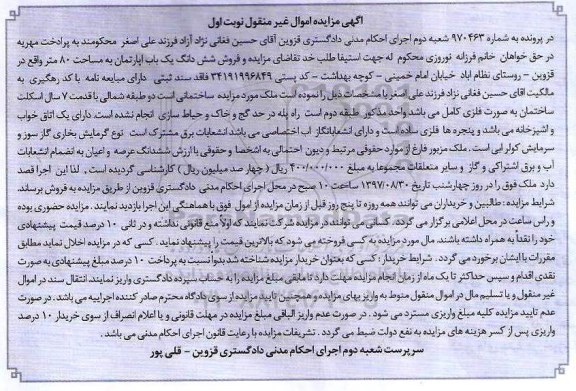 آگهی مزایده اموال غیر منقول نوبت اول
در پرونده به شماره ۹۷۰۴۶۳ شعبه دوم اجرای احکام مدنی دادگستری قزوین آقای حسین فغانی نژاد آزاد فرزند علی اصغر محکومند به پرداخت مهریه
در حق خواهان خانم فرزانه نوروزی محکوم له جهت استیفا طلب خد تقاضای مزایده و فروش شش دانگ یک باب آپارتمان به مساحت ۸۰ متر واقع در
قزوین - روستای نظام آباد خیابان امام خمینی - کوچه بهداشت - کد پستی ۳۴۱۹۱۹۹۶۸۴۹ فقد سند ثبتی دارای مبایعه نامه با کد رهگیری به
مالکیت آقای حسین فغانی نژاد فرزند علی اصغر با مشخصات ذیل را نموده است ملک مورد مزایده ساختمانی است دو طبقه شمالی با قدمت ۷ سال اسکلت
ساختمان به صورت فلزی کامل می باشد واحد مذکور طبقه دوم است راه پله در حد گچ و خاک و حیاط سازی انجام نشده است. دارای یک اتاق خواب
و آشپزخانه می باشد و پنجره ها فلزی ساده است و دارای انشعابات گاز آب اختصاصی می باشد انشعابات برق مشترک است نوع گرمایش بخاری گاز سوز و
سرمایش کولر آبی است. ملک مزبور فارغ از موارد حقوقی مرتبط و دیون احتمالی به اشخاص و حقوقی با ارزش ششدانگ عرصه و اعیان به انضمام انشعابات
آب و برق اشتراکی و گاز و سایر متعلقات مجموعا به مبلغ ۴۰۰/۰۰۰/۰۰۰ ریال ( چهار صد میلیون ریال ) کارشناسی گردیده است ، لذا این اجرا قصد
دارد ملک فوق را در روز چهارشنبه تاریخ ۱۳۹۷/۰۸/۳۰ ساعت ۱۰ صبح در محل اجرای احکام مدنی دادگستری قزوین از طریق مزایده به فروش برساند.
شرایط مزایده : طالبین و خریداران می توانند همه روزه تا پنج روز قبل از زمان مزایده از اموال فوق با هماهنگی این اجرا بازدید نمایند. مزایده حضوری بوده
و راس ساعت در محل اعلامی برگزار می گردد. کسانی می توانند در مزایده شرکت نمایند که اولاً منع قانونی نداشته و در ثانی ۱۰ درصد قیمت پیشنهادی
خود را نقداً به همراه داشته باشند. مال مورد مزایده به کسی فروخته می شود که بالاترین قیمت را پیشنهاد نماید . کسی که در مزایده اخلال نماید مطابق
مقررات با ایشان برخورد می گردد . شرایط خریدار : کسی که بعنوان خریدار مزایده شناخته شد بدواً نسبت به پرداخت ۱۰ درصد مبلغ پیشنهادی به صورت
نقدی اقدام و سپس حداکثر تا یک ماه از زمان انجام مزایده مهلت دارد تا مابقی مبلغ مزایده را به حساب سپرده دادگستری واریز نمایند. انتقال سند در اموال
غیر منقول و یا تسلیم مال در اموال منقول منوط به واریز بهای مزایده و همچنین تایید مزایده از سوی دادگاه محترم صادر کننده اجراییه می باشد . در صورت
عدم تایید مزایده کلیه مبلغ واریزی مسترد می شود . در صورت عدم واریز الباقی مبلغ مزایده در مهلت قانونی و یا اعلام انصراف از سوی خریدار ۱۰ درصد
واریزی پس از کسر هزینه های مزایده به نفع دولت ضبط می گردد . تشریفات مزایده با رعایت قانون اجرای احکام مدنی می باشد .
سرپرست شعبه دوم اجرای احکام مدنی دادگستری قزوین - قلی پور